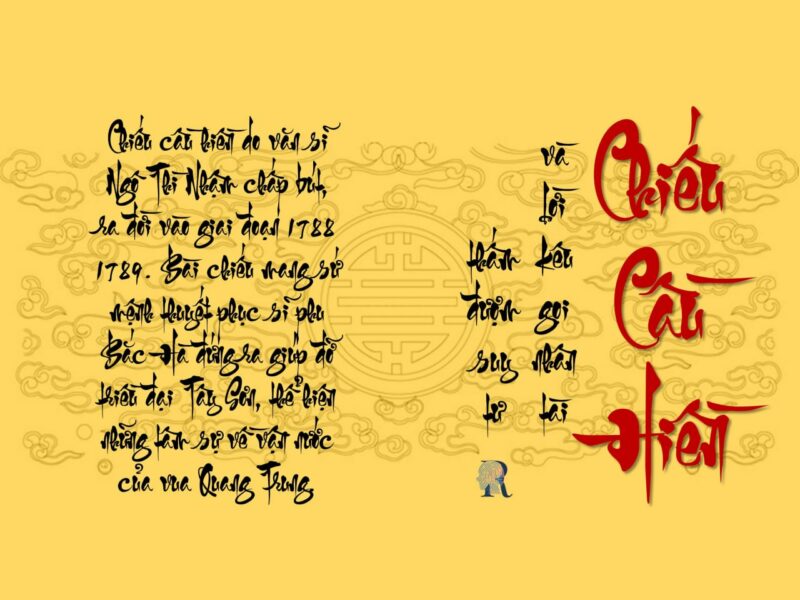 Chiếu
Cầu
Hiền
và
lời
kêu
gọi
nhân
tài
thấm
đượm
suy
tư
Chiếu cầu hiền do văn sĩ
Ngô Thì Nhậm chấp bút,
ra đời vào giai đoạn 1788
1789. Bài chiếu mang sứ
mệnh thuyết phục sĩ phu
Bắc Hà đứng ra giúp đỡ
triều đại Tây Sơn, thể hiện
những tâm sự về vận nước
của vua Quang Trung
R